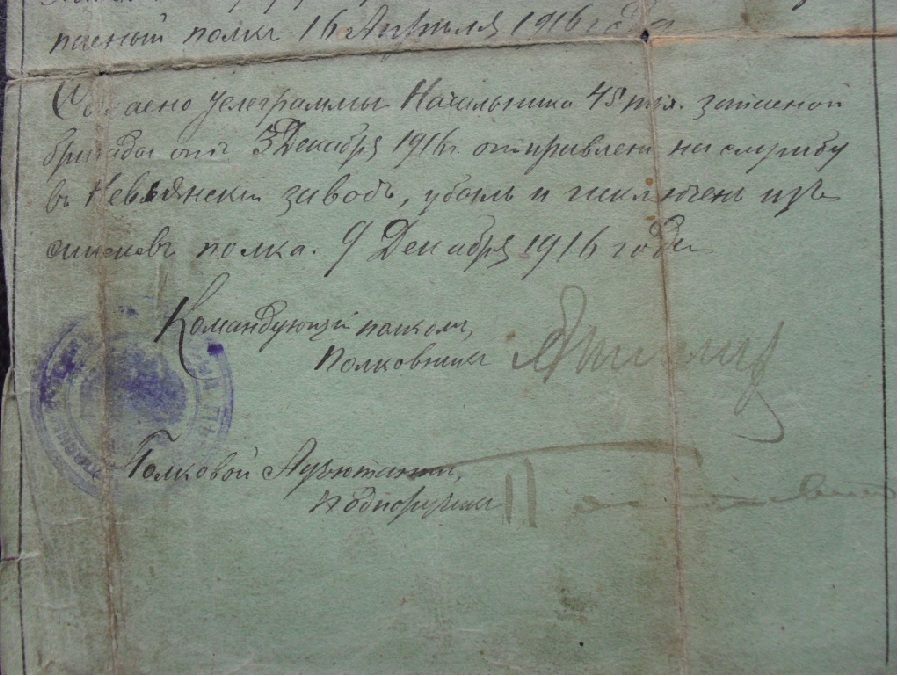 пасный полкъ 16 Апрѣля 1916 года
Согласно телеграммы Начальника 45 пѣх. запасной
бригады отъ 3 Декабря 1916 г. отправленъ на службу
въ Невьянскій заводъ, убылъ и исключенъ изъ
списковъ полка. 9 Декабря 1916 года
Командующій полкомъ,
Полковникъ
Полковой Адъютантъ,
Подпоручикъ